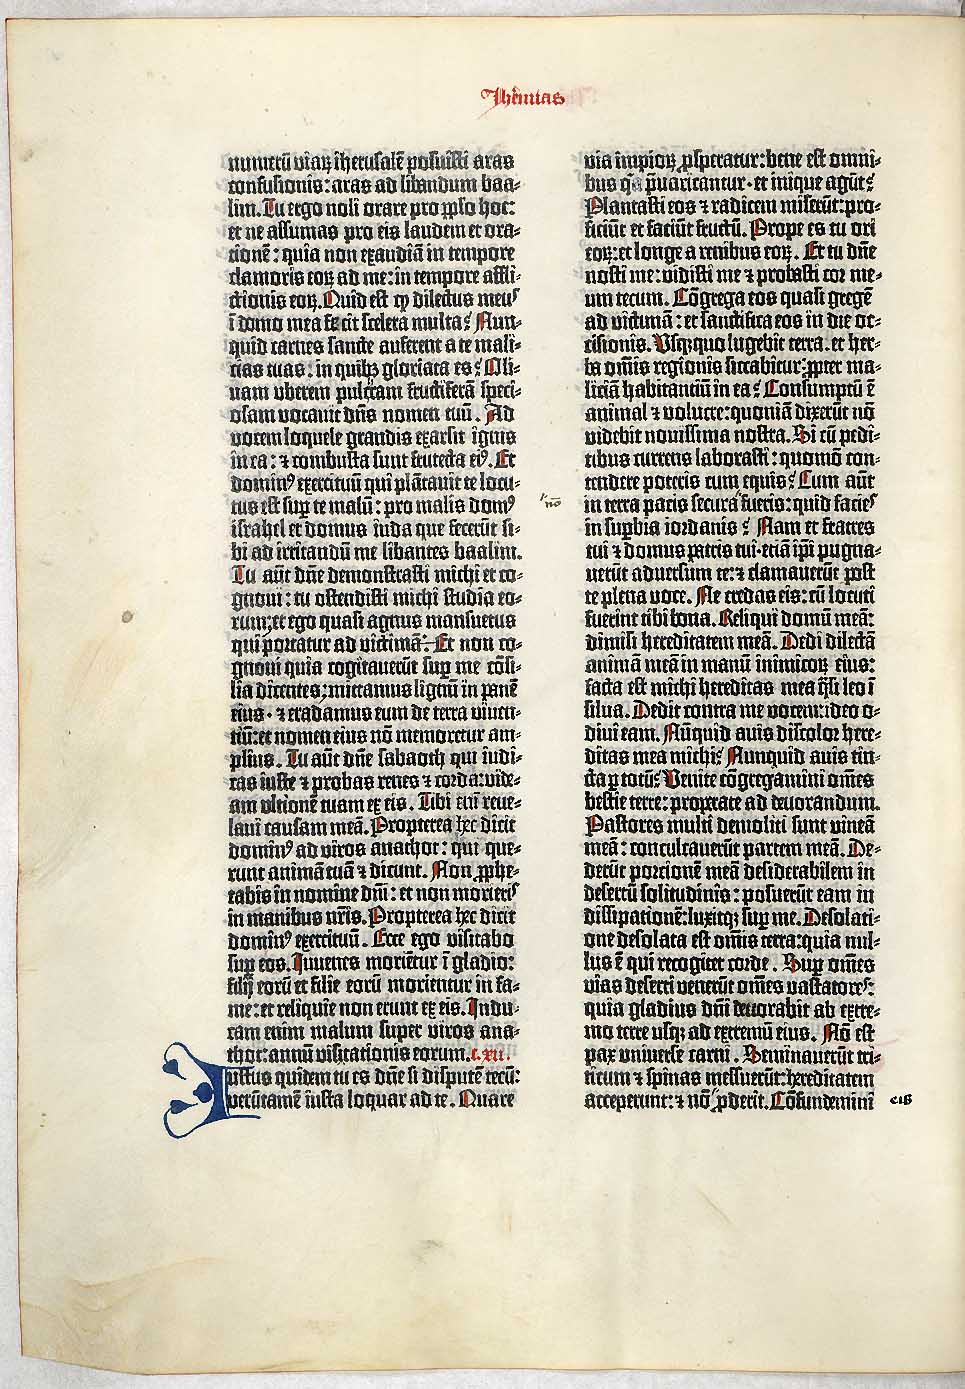 Jheremias
numerū viaꝝ iherusalē posuisti aras
confusionis: aras ad libandum baa-
lim. Tu ergo noli orare pro ꝓplo hoc:
et ne assumas pro eis laudem et ora-
tionē: quia non exaudiā in tempore
clamoris eoꝝ ad me: in tempore affli-
ctionis eoꝝ. Quid est ꝙ dilectus meus
ī domo mea fecit scelera multa? Nun-
quid carnes sancte auferent a te mali-
cias tuas: in quibꝫ gloriata es? Oli-
uam vberem pulcram fructiferā speci-
osam vocauit dn̄s nomen tuū. Ad
vocem loquele grandis exarsit ignis
in ea: ⁊ combusta sunt fruteta eiꝰ. Et
dominꝰ exercituū qui plātauit te locu-
tus est suꝑ te malū: pro malis domꝰ
israhel et domus iuda que fecerūt si-
bi ad irritandū me libantes baalim.
Tu aūt dn̄e demonstrasti michi et co-
gnoui: tu ostendisti michi studia eo-
rum: et ego quasi agnus mansuetus
qui portatur ad victimā: Et non co-
gnoui quia cogitauerūt suꝑ me cōsi-
lia dicentes: mittamus lignū in panē
eius· ⁊ eradamus eum de terra viuen-
tiū: et nomen eius nō memoretur am-
plius. Tu aūt dn̄e sabaoth qui iudi-
cas iuste ⁊ probas renes ⁊ corda: vide-
am vltionē tuam ex eis. Tibi eni reue-
laui causam meā. Propterea hec dicit
dominꝰ ad viros anathot: qui que-
runt animā tuā ⁊ dicunt. Non ꝓphe-
tabis in nomine dn̄i: et non morieris
in manibus nr̄is. Propterea hec dicit
dominꝰ exercituū. Ecce ego visitabo
suꝑ eos. Iuuenes moriētur ī gladio:
filij eorū et filie eorū morientur in fa-
me: et reliquie non erunt ex eis. Indu-
cam enim malum super viros ana-
thot: annū visitationis eorum. c. xii.
Iustus quidem tu es dn̄e si disputē tecū:
verūtamē iusta loquar ad te. Quare
via impioꝝ ꝓsperatur: bene est omni-
bus qui p̄uaricantur· et inique agūt?
Plantasti eos ⁊ radicem miserūt: pro-
ficiūt et faciūt fructū. Prope es tu ori
eoꝝ: et longe a renibus eoꝝ. Et tu dn̄e
nosti me: vidisti me ⁊ probasti cor me-
um tecum. Cōgrega eos quasi gregē
ad victimā: et sanctifica eos in die oc-
cisionis. Vsqꝫquo lugebit terra· et her-
ba om̄is regionis siccabitur: ꝓpter ma-
liciā habitantiū in ea? Consumptū ē
animal ⁊ volucre: quoniā dixerūt nō
videbit nouissima nostra. Si cū pedi-
tibus currens laborasti: quomō con-
tendere poteris cum equis? Cum aūt
nō
in terra pacis secura fueris: quid facies
in suꝑbia iordanis? Nam et fratres
tui ⁊ domus patris tui· etiā ip̄i pugna-
uerūt aduersum te: ⁊ clamauerūt post
te plena voce. Ne credas eis: cū locuti
fuerint tibi bona. Reliqui domū meā:
dimisi hereditatem meā. Dedi dilectā
animā meā in manū inimicoꝝ eius:
facta est michi hereditas mea q̄si leo ī
silua. Dedit contra me vocem: ideo o-
diui eam. Nūquid auis discolor here-
ditas mea michi? Nunquid auis tin-
cta ꝑ totū? Venite cōgregamini om̄es
bestie terre: properate ad deuorandum.
Pastores multi demoliti sunt vineā
meā: conculcauerūt partem meā. De-
derūt porcionē meā desiderabilem in
desertū solitudinis: posuerūt eam in
dissipationē: luxitqꝫ suꝑ me. Desolati-
one desolata est om̄is terra: quia nul-
lus ē qui recogitet corde. Suꝑ om̄es
vias deserti venerūt om̄es vastatores:
quia gladius dn̄i deuorabit ab extre-
mo terre vsqꝫ ad extremū eius. Nō est
pax vniuerse carni. Seminauerūt tri-
ticum ⁊ spinas messuerūt: hereditatem
acceperunt: ⁊ nō ꝓderit. Cōfundemini
eis